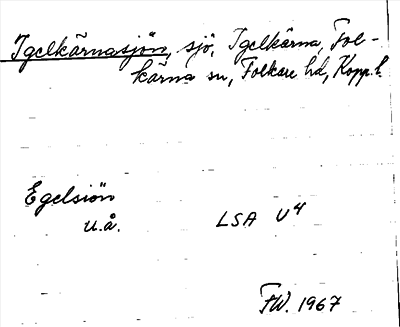 Igelkärnasjön, sjö, Igelkärna, Fol-
kärna sn, Folkare hd, Kopp. l.
Egelsiön
u.å. LSA U4
FW. 1967